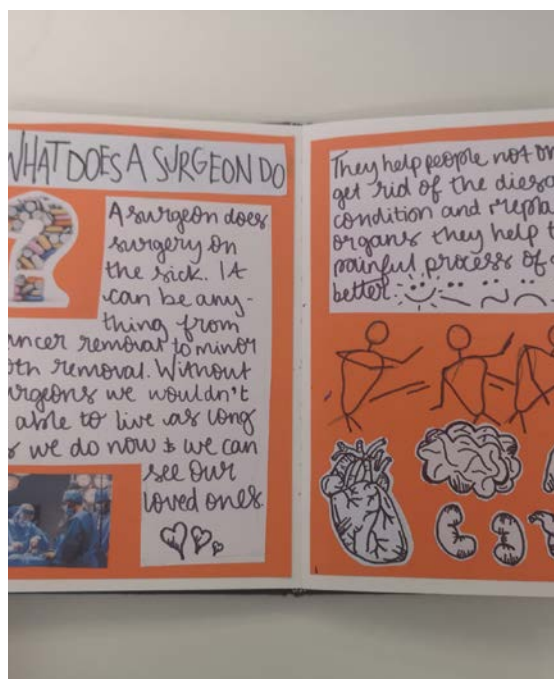 WHAT DOES A SURGEON DO
A surgeon does
surgery on
the sick. It
can be any-
thing from
ncer removal to minor
oth removal. Without
urgeons we wouldn't
able to live as long
s we do now & we can
see our
loved ones.
They help people not on
get rid of the
condition and
organs they help t
painful process of
better